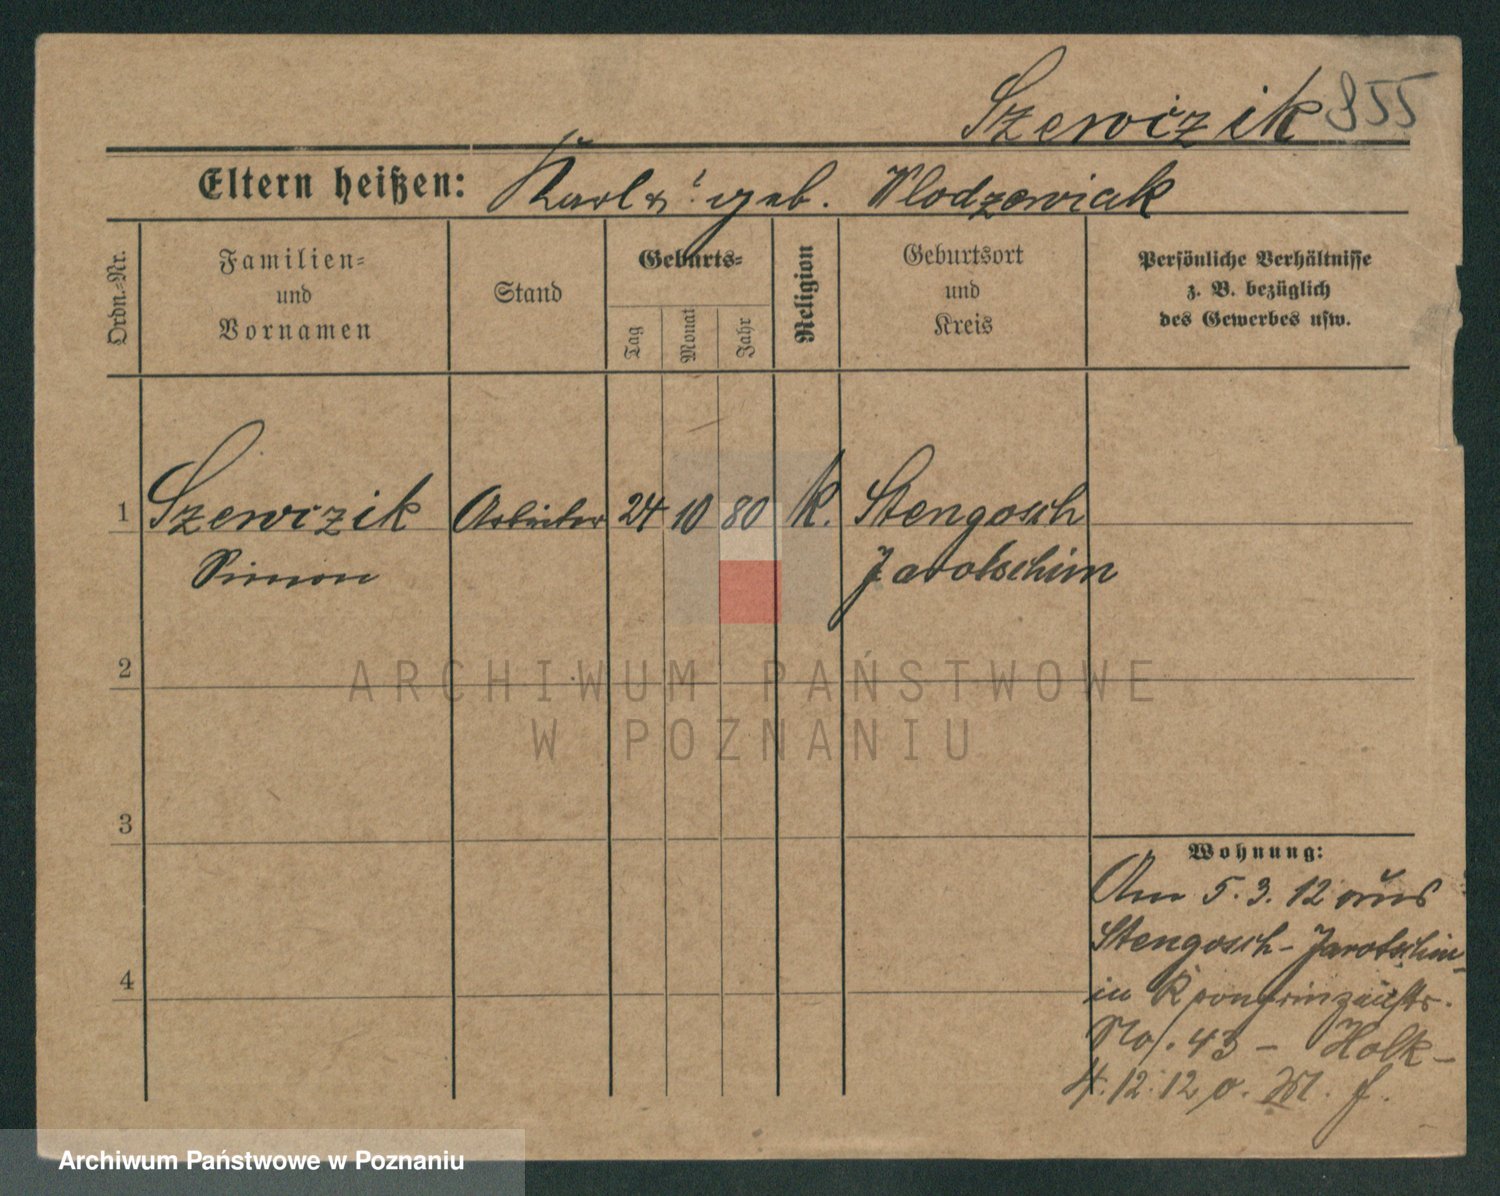 Szewczik 855
Eltern heißen: Karl u. ? geb. Wlodzewiak
Ordn.-Nr.
Familien-
und
Vornamen
Stand
Geburts-
Tag
Monat
Jahr
Religion
Geburtsort
und
Kreis
Persönliche Verhältnisse
z. B. bezüglich
des Gewerbes usw.
1 Szewczik Arbeiter 24 10 80 K. Stengosch
Simon Jarotschin
2
3
4
Wohnung:
Am 5.3.12 aus
Stengosch - Jarotschin
in Kronprinzenstr.
No. 43 - Holk -
4.12.12 o. M. f.
ARCHIWUM PAŃSTWOWE
W POZNANIU
Archiwum Państwowe w Poznaniu